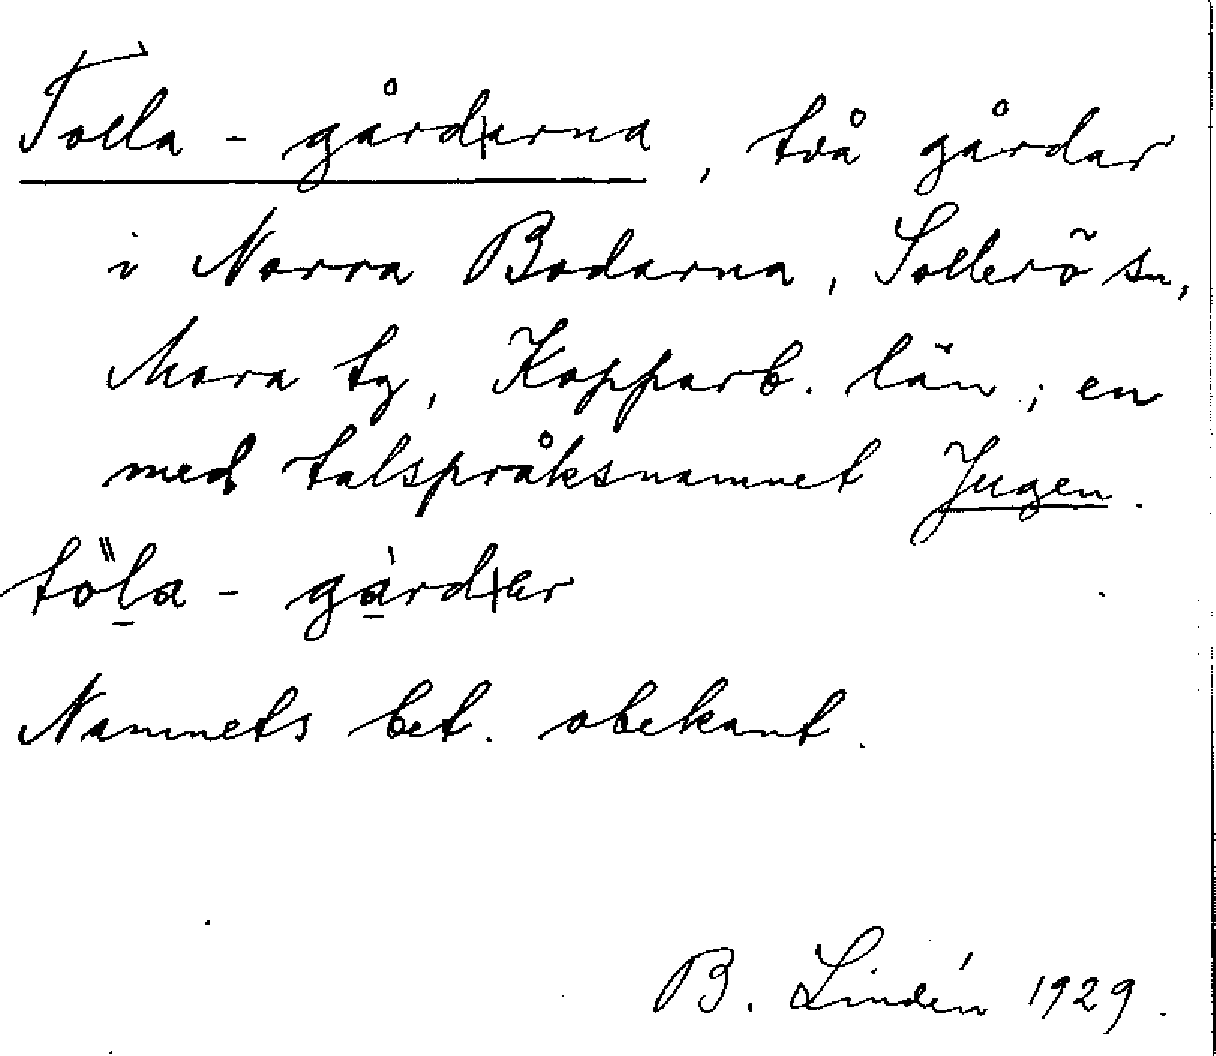 Tolla-gård|arna, två gårdar
i Norra Bodarna, Sollerö sn,
Mora tg, Kopparb. län; en
med talspråksnamnet Jugen.
tö̋l̠a-gà̠rd|er
Namnets bet. obekant.
B. Lindén 1929.